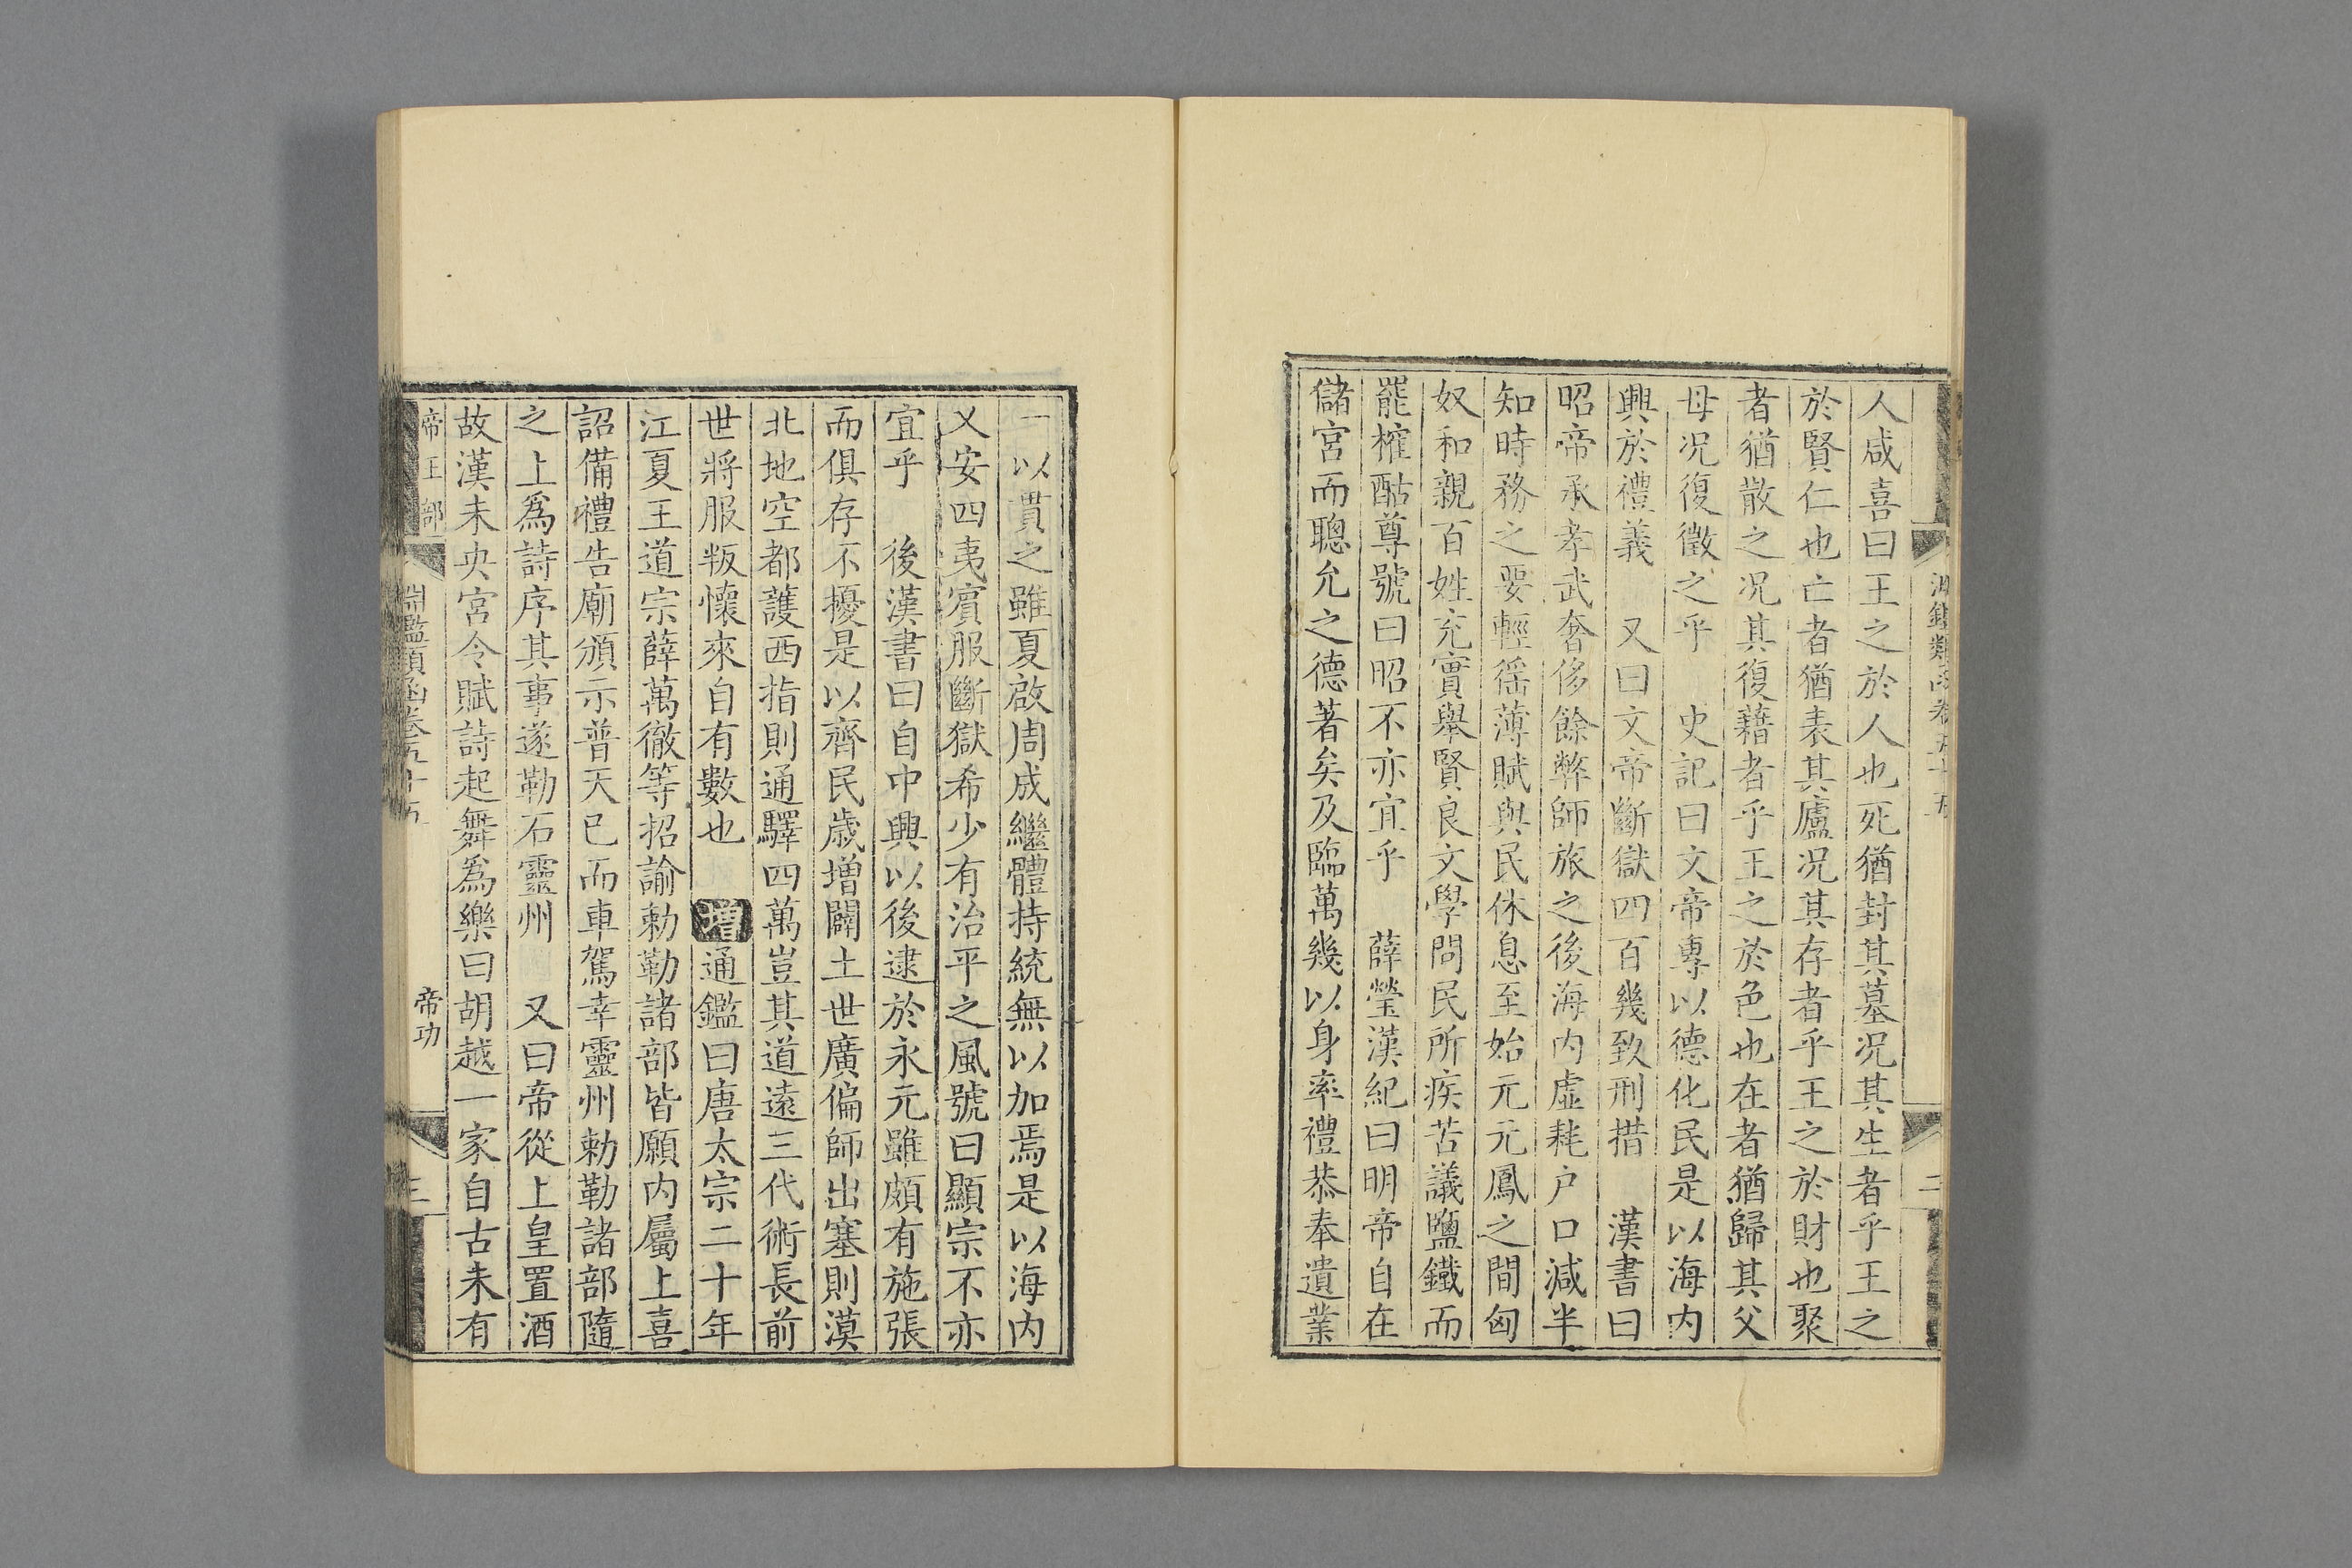 淵鑑類函卷五十五
二
人咸喜曰王之於人也死猶封其墓况其生者乎王之
於賢仁也亡者猶表其廬况其存者乎王之於財也聚
者猶散之况其復藉者乎王之於色也在者猶歸其父
母况復徵之乎　史記曰文帝專以德化民是以海内
興於禮義　又曰文帝斷獄四百幾致刑措　漢書曰
昭帝承孝武奢侈餘弊師旅之後海内虚耗户口減半
知時務之要輕徭薄賦與民休息至始元元鳳之間匈
奴和親百姓充實舉賢良文學問民所疾苦議鹽鐵而
罷榷酤尊號曰昭不亦宜乎　薛瑩漢紀曰明帝自在
儲宮而聰允之德著矣及臨萬幾以身率禮恭奉遺業
一以貫之雖夏啟周成繼體持統無以加焉是以海内
乂安四夷賓服斷獄希少有治平之風號曰顯宗不亦
宜乎　後漢書曰自中興以後逮於永元雖頗有施張
而俱存不擾是以齊民歲增闢土世廣偏師出塞則漠
北地空都護西指則通驛四萬豈其道遠三代術長前
世將服叛懷來自有數也　增通鑑曰唐太宗二十年
江夏王道宗薛萬徹等招諭勅勒諸部皆願内屬上喜
詔備禮告廟頒示普天已而車駕幸靈州勅勒諸部隨
之上爲詩序其事遂勒石靈州　又曰帝從上皇置酒
故漢未央宮令賦詩起舞爲樂曰胡越一家自古未有
帝王部
淵鑑類函卷五十五
帝功
三